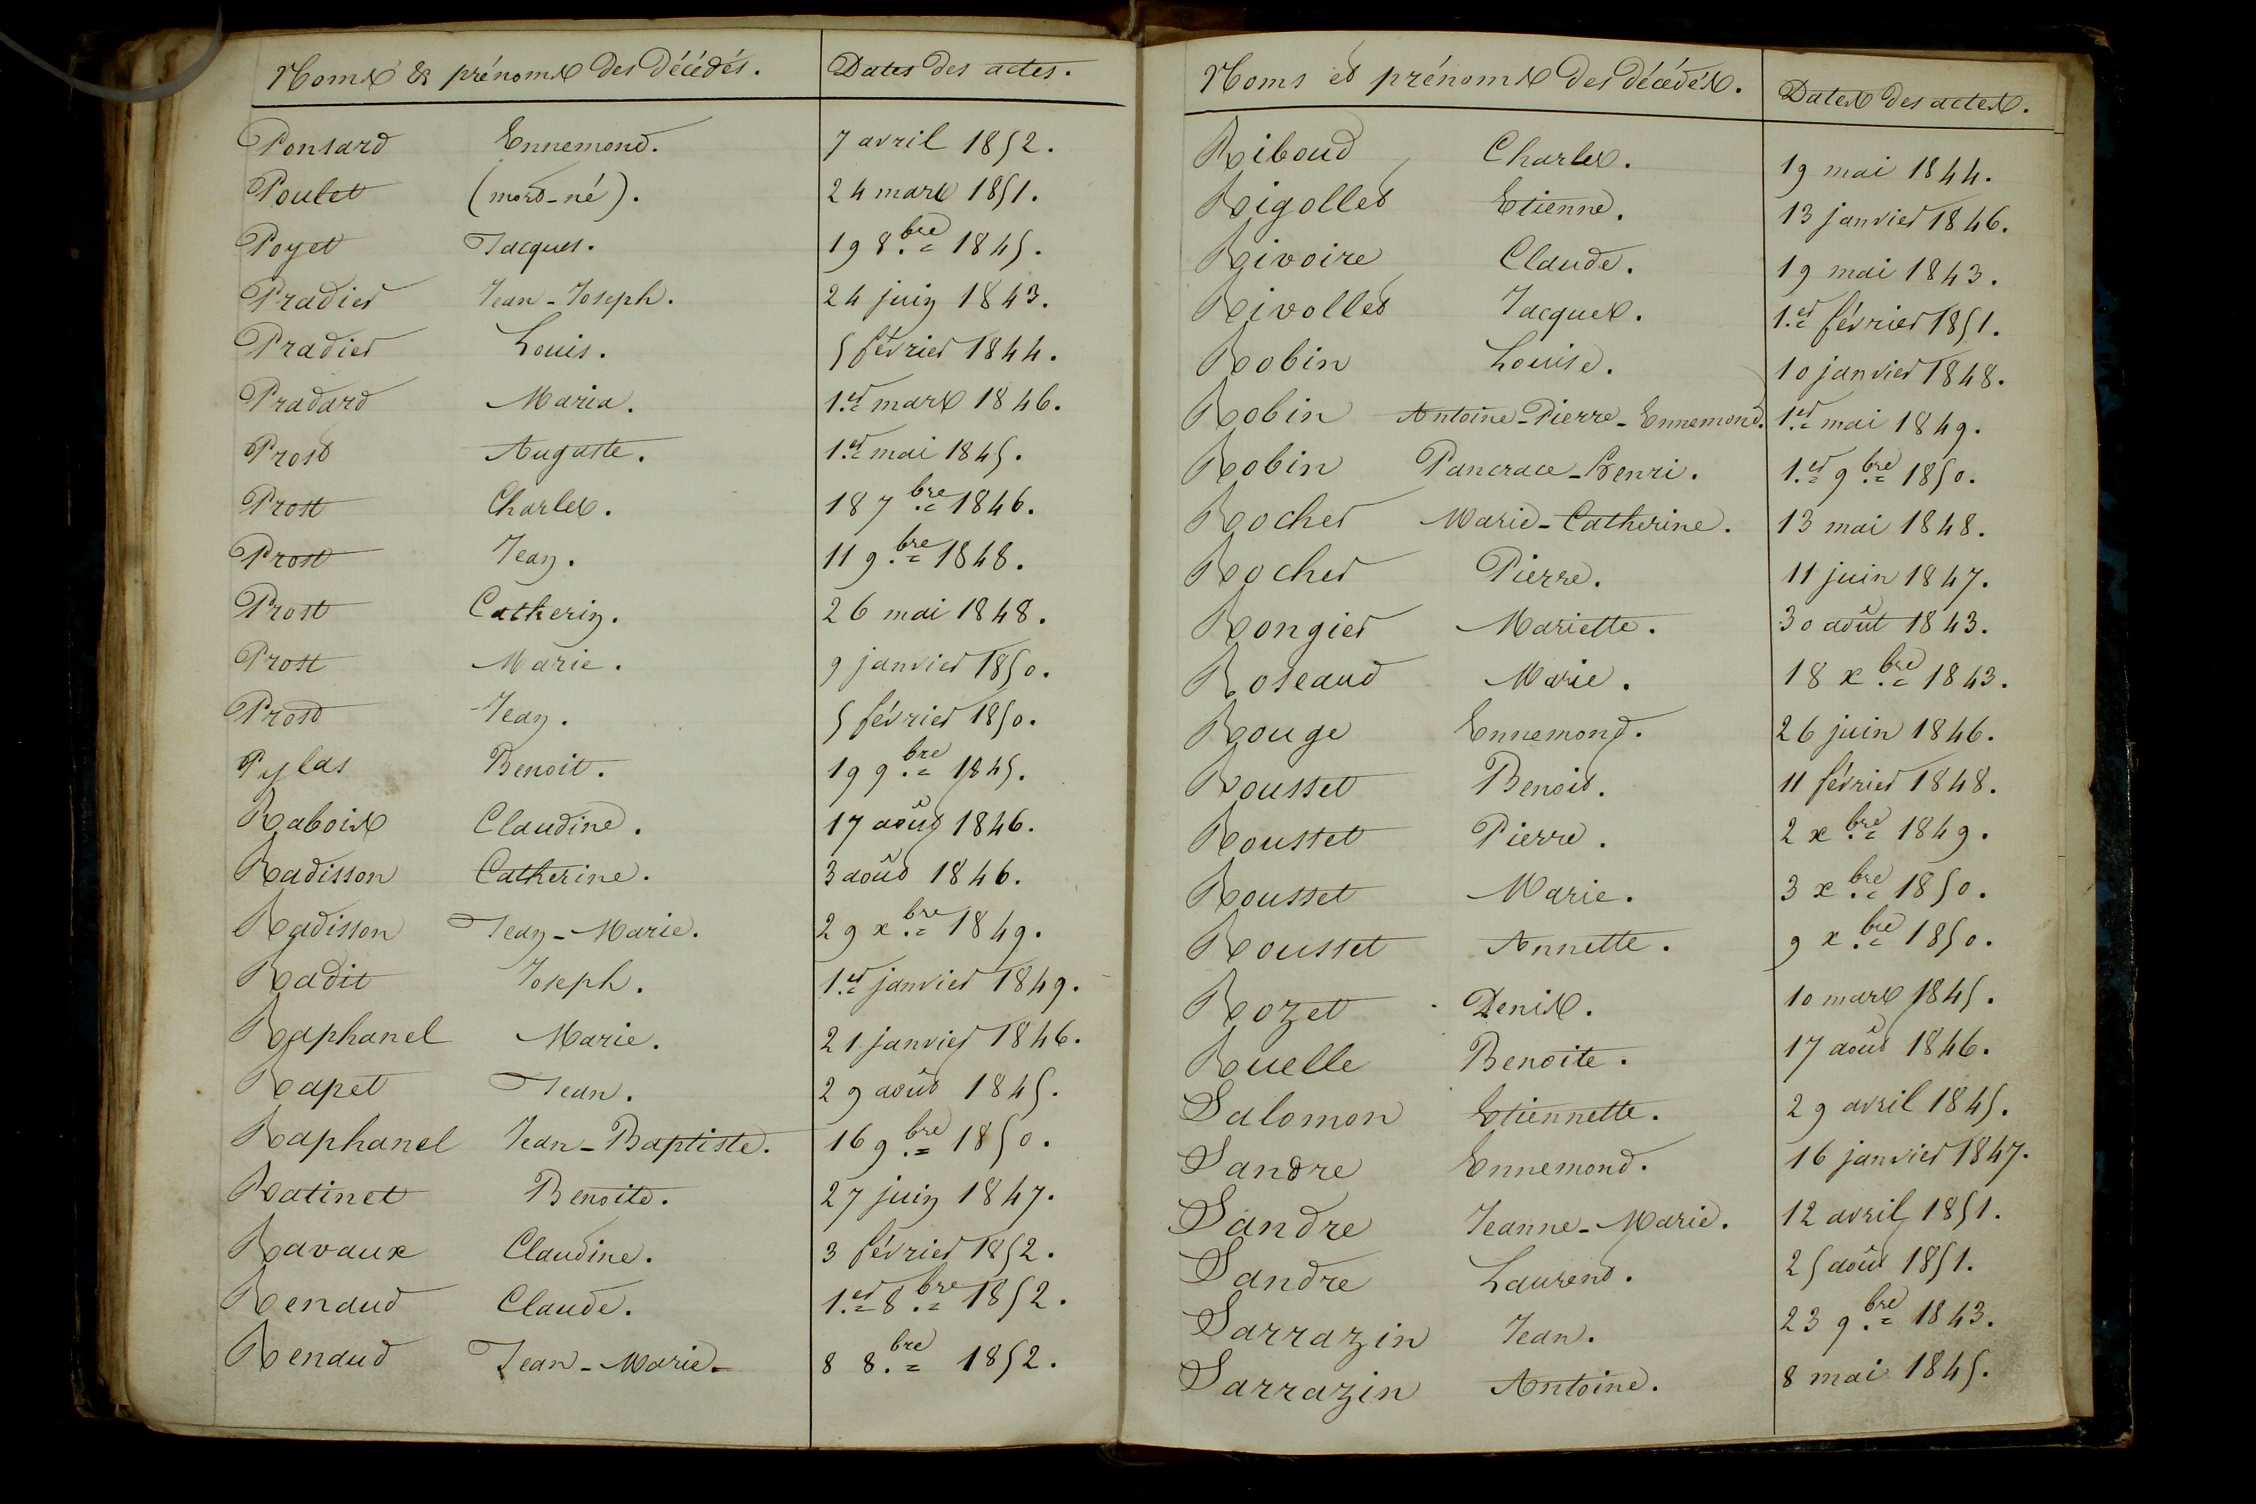 Noms & prénoms des décédés. Dates des actes.
Ponsard Ennemond. 7 avril 1852.
Poulet (mort-né). 24 mars 1851.
Poyet Jacques. 19 8.bre 1845.
Pradier Jean-Joseph. 24 juin 1843.
Pradier Louis. 5 février 1844.
Pradard Maria. 1.er mars 1846.
Prost Auguste. 1.er mai 1845.
Prost Charles. 18 7.bre 1846.
Prost Jean. 11 9.bre 1848.
Prost Catherin. 26 mai 1848.
Prost Marie. 9 janvier 1850.
Prost Jean. 5 février 1850.
Pylas Benoit. 19 9.bre 1845.
Rabois Claudine. 17 août 1846.
Radisson Catherine. 3 août 1846.
Radisson Jean-Marie. 29 x.bre 1849.
Radit Joseph. 1.er janvier 1849.
Raphanel Marie. 21 janvier 1846.
Rapet Jean. 29 août 1845.
Raphanel Jean-Baptiste. 16 9.bre 1850.
Ratinet Benoite. 27 juin 1847.
Ravaux Claudine. 3 février 1852.
Renaud Claude. 1.er 8.bre 1852.
Renaud Jean-Marie- 8 8.bre 1852.
Noms et prénoms des décédés. Dates des actes.
Riboud Charles. 19 mai 1844.
Rigollet Etienne. 13 janvier 1846.
Rivoire Claude. 19 mai 1843.
Rivollet Jacques. 1.er février 1851.
Robin Louise. 10 janvier 1848.
Robin Antoine-Pierre-Ennemond. 1.er mai 1849.
Robin Pancrace-Henri. 1.er 9.bre 1850.
Rocher Marie-Catherine. 13 mai 1848.
Rocher Pierre. 11 juin 1847.
Rongier Mariette. 30 août 1843.
Roseaud Marie. 18 x.bre 1843.
Rouge Ennemond. 26 juin 1846.
Rousset Benoit. 11 février 1848.
Rousset Pierre. 2 x.bre 1849.
Rousset Marie. 3 x.bre 1850.
Rousset Annette. 9 x.bre 1850.
Rozet Denis. 10 mars 1845.
Ruelle Benoite. 17 août 1846.
Salomon Etiennette. 29 avril 1845.
Sandre Ennemond. 16 janvier 1847.
Sandre Jeanne-Marie. 12 avril 1851.
Sandre Laurent. 25 août 1851.
Sarrazin Jean. 23 9.bre 1843.
Sarrazin Antoine. 8 mai 1845.